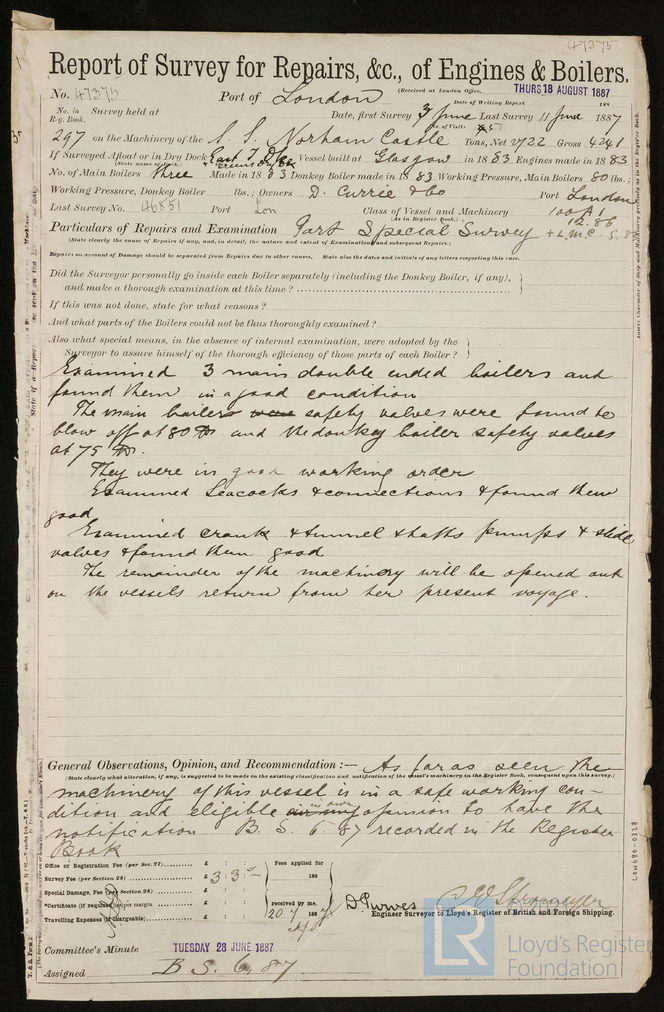 47375
Report of Survey for Repairs, &c., of Engines & Boilers.
(Received at London Office, THURS 18 AUGUST 1887
No. 47375 Port of London
Date of Writing Report 188
No. in Reg. Book. Survey held at Date, first Survey 3 June Last Survey 11 June 1887
(No. of Visits
297 on the Machinery of the S. S. Norham Castle Tons, Net 2722 Gross 4241
If Surveyed Afloat or in Dry Dock East I. Dks & Dry Dk Vessel built at Glasgow in 1883 Engines made in 1883
(State name of Dock.)
No. of Main Boilers three Made in 1883 Donkey Boiler made in 1883 Working Pressure, Main Boilers 80 lbs.;
Working Pressure, Donkey Boiler lbs.; Owners D. Currie & Co Port London
Last Survey No. 46851 Port Lon Class of Vessel and Machinery 100 A 1
(As in Register Book.) 12.86
Particulars of Repairs and Examination Part Special Survey + L.M.C. 5.83
(State clearly the cause of Repairs if any, and, in detail, the nature and extent of Examination and subsequent Repairs.)
Repairs on account of Damage should be separated from Repairs due to other causes. State also the dates and initials of any letters respecting this case.
Did the Surveyor personally go inside each Boiler separately (including the Donkey Boiler, if any),
and make a thorough examination at this time?
If this was not done, state for what reasons?
And what parts of the Boilers could not be thus thoroughly examined?
Also what special means, in the absence of internal examination, were adopted by the
Surveyor to assure himself of the thorough efficiency of those parts of each Boiler?
Examined 3 main double ended boilers and
found them in a good condition
The main boilers were safety valves were found to
blow off at 80 lbs and the donkey boiler safety valves
at 75 lbs.
They were in good working order
Examined Seacocks & connections & found them
good
Examined crank & tunnel shafts pumps & slide
valves & found them good
The remainder of the machinery will be opened out
on the vessels return from her present voyage.
General Observations, Opinion, and Recommendation:— As far as seen the
(State clearly what alteration, if any, is suggested to be made in the existing classification and notification of the vessel's machinery in the Register Book, consequent upon this survey.)
machinery of this vessel is in a safe working con-
dition and eligible in our opinion to have the
notification B. S. 6 87 recorded in the Register
Book
Office or Registration Fee (per Sec. 27) £ : : Fees applied for
Survey Fee (per Section 28) £ 3 : 3 : - 188
Special Damage, Fee (per Section 28) £ : :
*Certificate (if required) as per margin £ : : received by me,
Travelling Expenses (if chargeable) £ : : 20/7/1887
D Purves C E Stromeyer
Engineer Surveyor to Lloyd's Register of British and Foreign Shipping.
Committee's Minute TUESDAY 28 JUNE 1887
Assigned B S. 6, 87
LR Lloyd's Register
Foundation
Insert Character of Ship and Machinery precisely as in the Register Book.
LON680-0328